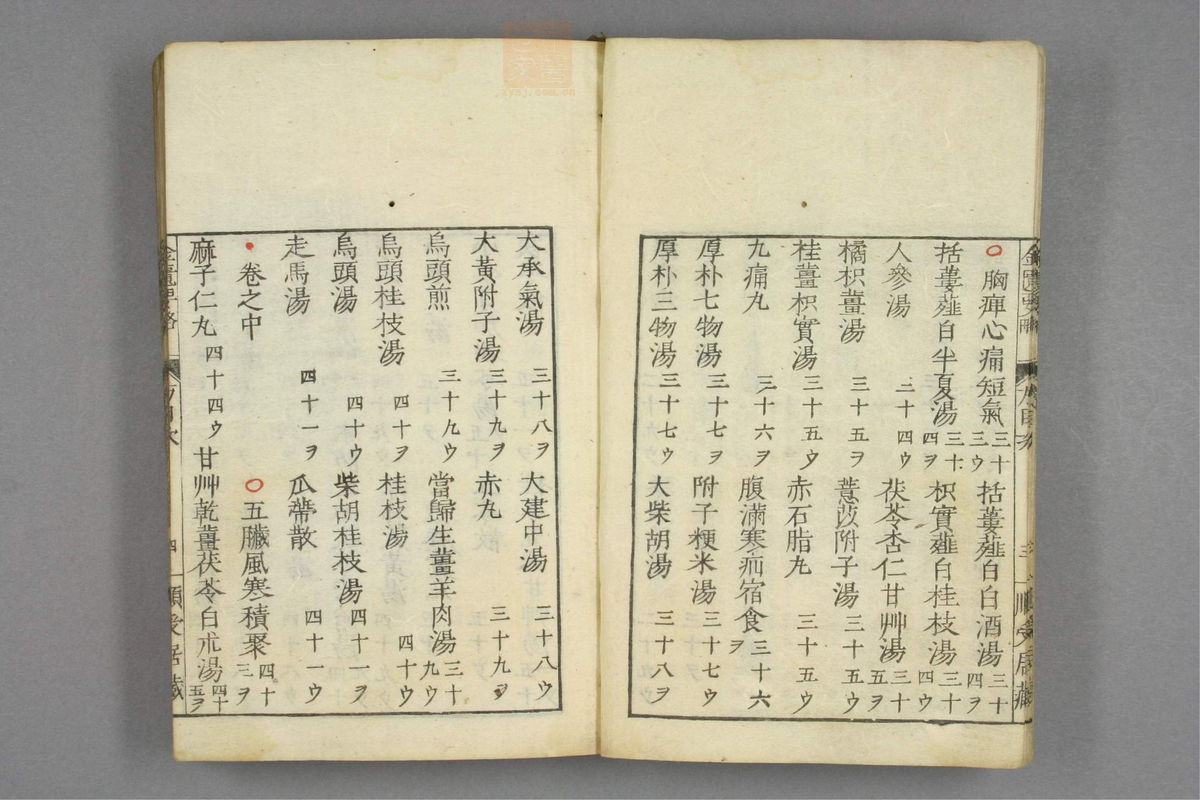 胸痺心痛短氣 三十三ウ 括蔞薤白白酒湯 三十四ヲ
括蔞薤白半夏湯 三十四ヲ 枳實薤白桂枝湯 三十四ウ
人參湯 三十四ウ 茯苓杏仁甘艸湯 三十五ヲ
橘枳薑湯 三十五ヲ 薏苡附子湯 三十五ウ
桂薑枳實湯 三十五ウ 赤石脂丸 三十五ウ
九痛丸 三十六ヲ 腹滿寒疝宿食 三十六ヲ
厚朴七物湯 三十七ヲ 附子粳米湯 三十七ウ
厚朴三物湯 三十七ウ 大柴胡湯 三十八ヲ
大承氣湯 三十八ヲ 大建中湯 三十八ウ
大黃附子湯 三十九ヲ 赤丸 三十九ヲ
烏頭煎 三十九ウ 當歸生薑羊肉湯 三十九ウ
烏頭桂枝湯 四十ヲ 桂枝湯 四十ウ
烏頭湯 四十ウ 柴胡桂枝湯 四十一ヲ
走馬湯 四十一ヲ 瓜蒂散 四十一ウ
卷之中 五臟風寒積聚 四十三ヲ
麻子仁丸 四十四ウ 甘艸乾薑茯苓白朮湯 四十五ヲ